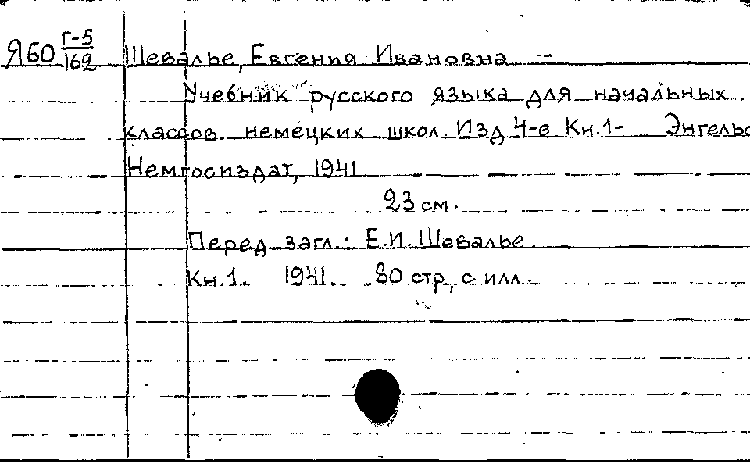 Я60 Г-5/162
Шевалье, Евгения Ивановна –
Учебник русского языка для начальных
классов немецких школ. Изд 4-е Кн.1- Энгельс
Немгосиздат, 1941
23 см.
Перед загл.: Е.И. Шевалье
Кн.1. 1941. 80 стр, с илл.